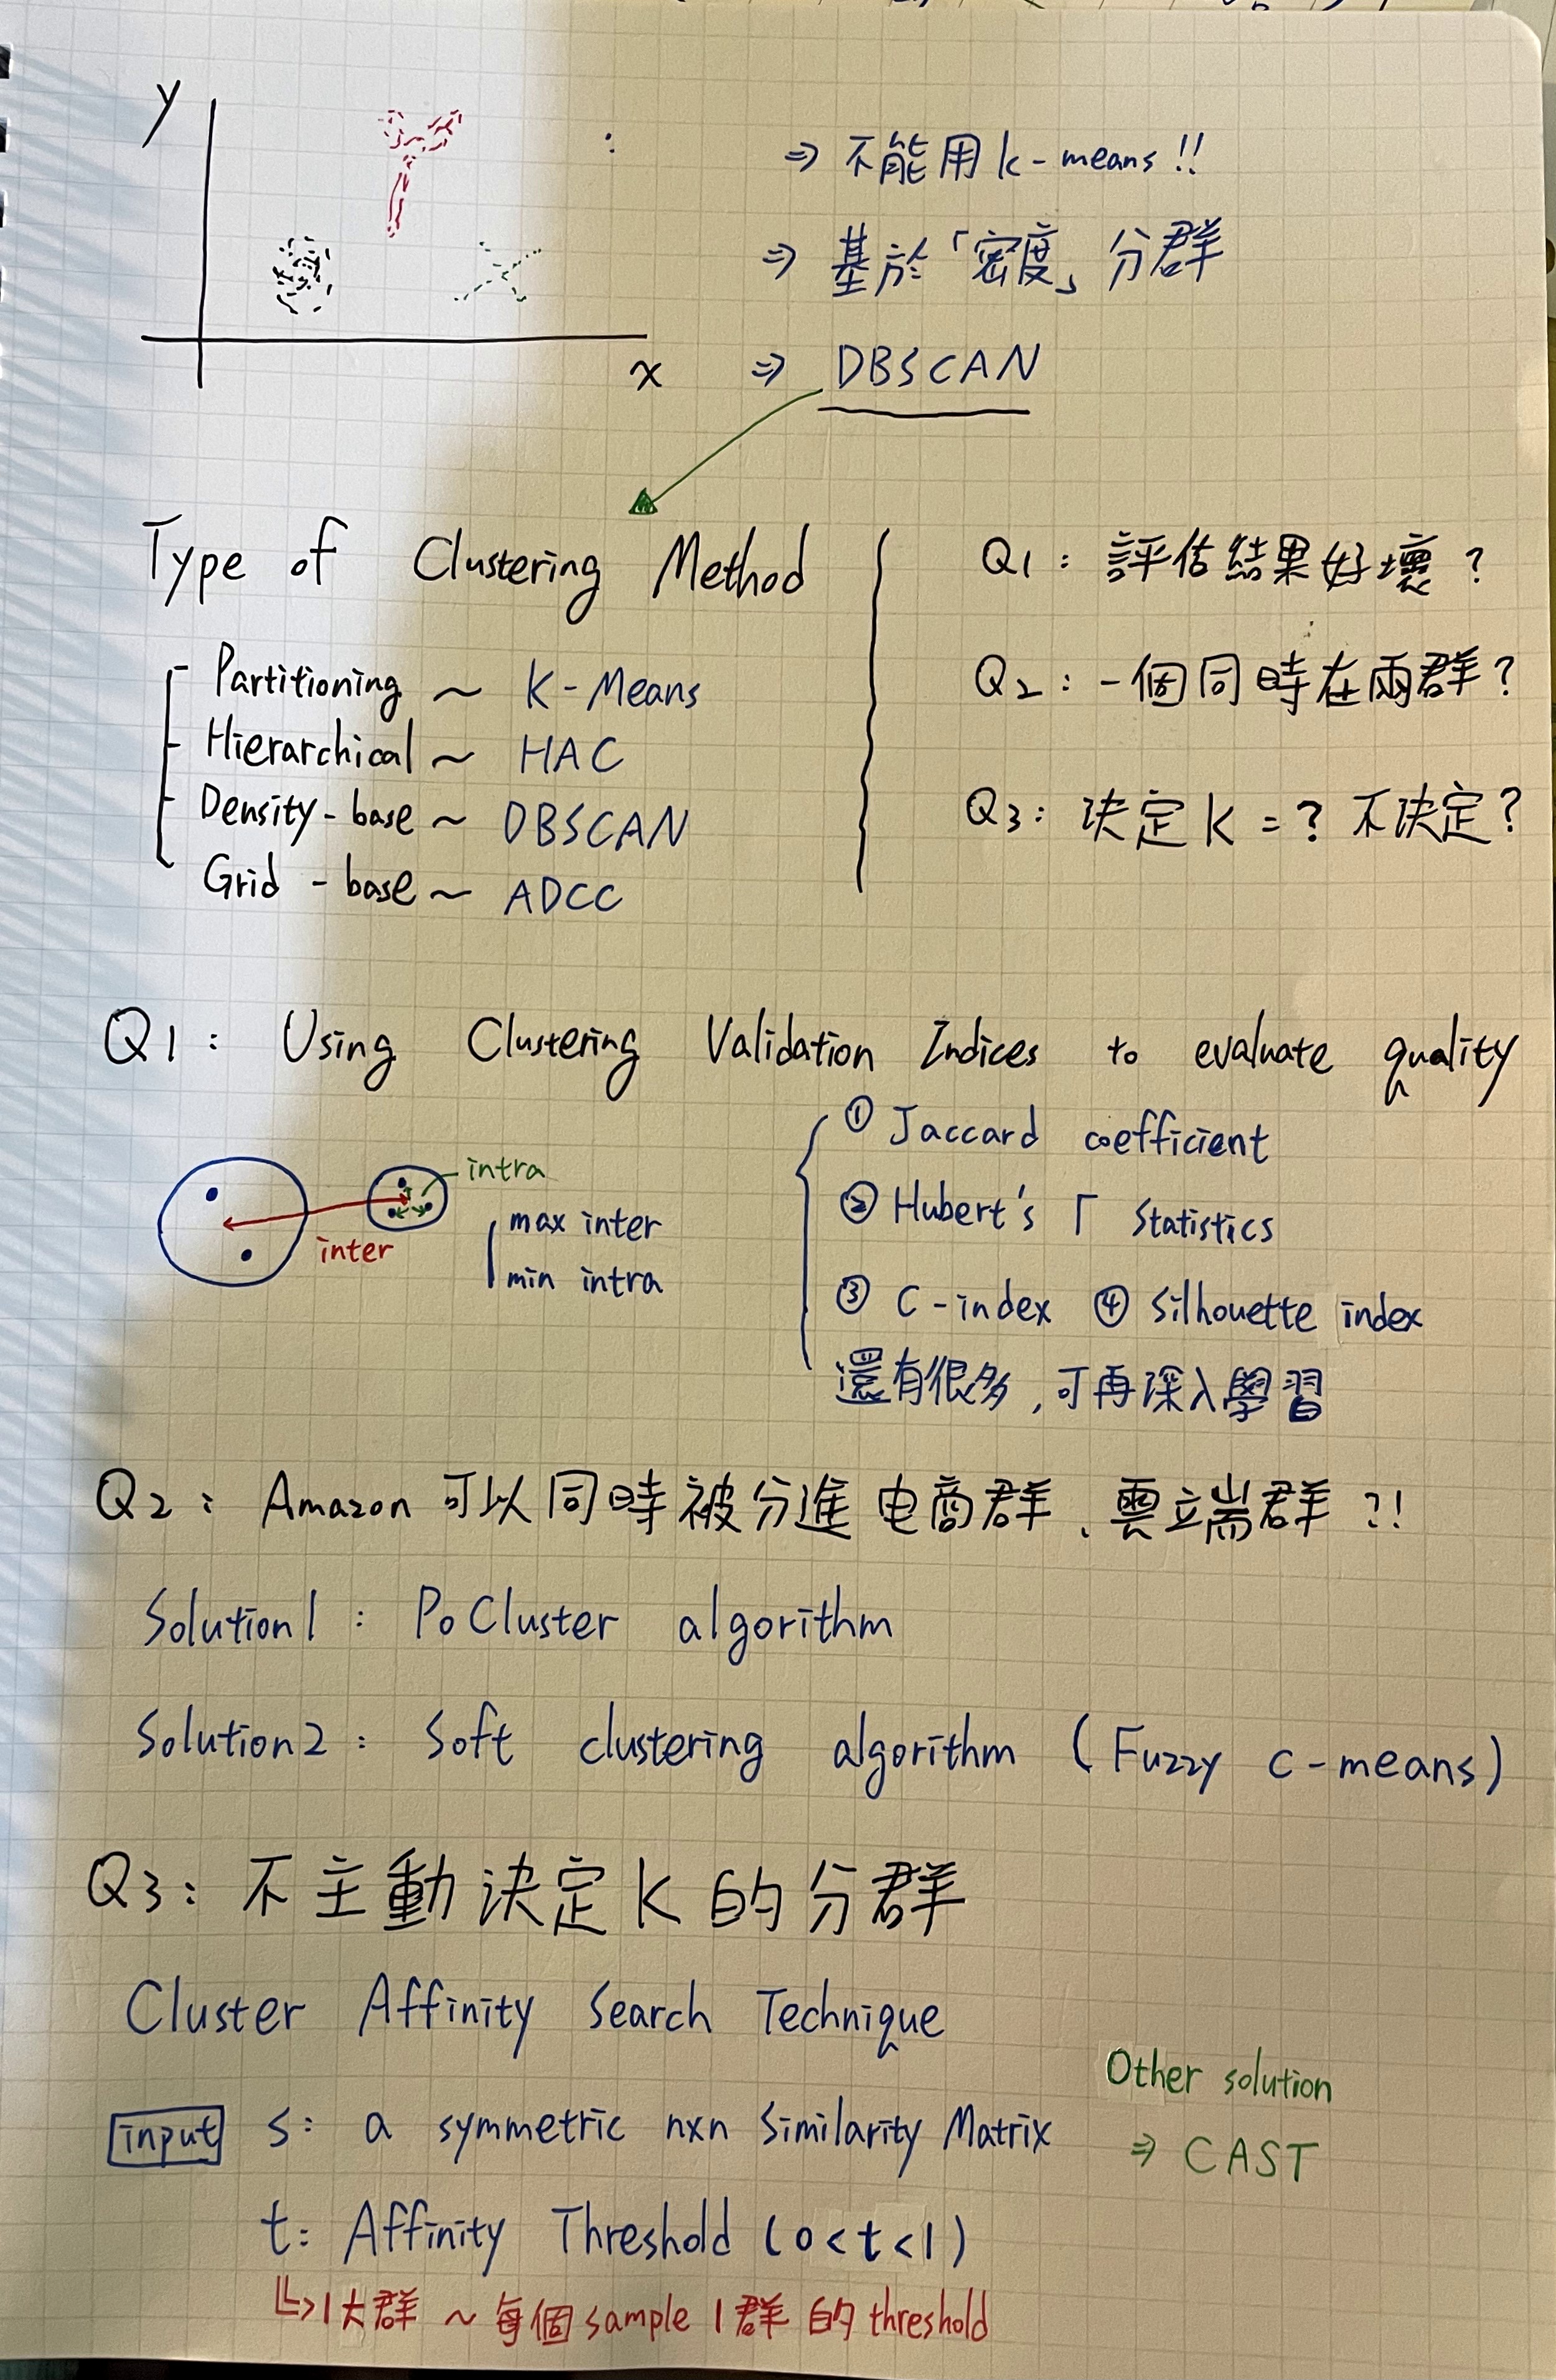 y
⇒ 不能用 k-means !!
⇒ 基於「密度」分群
x ⇒ DBSCAN
Type of Clustering Method
Partitioning ~ K-Means
Hierarchical ~ HAC
Density-base ~ DBSCAN
Grid-base ~ ADCC
Q1: 評估結果好壞?
Q2: 一個同時在兩群?
Q3: 決定 K = ? 不決定?
Q1: Using Clustering Validation Indices to evaluate quality
intra
inter
max inter
min intra
① Jaccard coefficient
② Hubert's Γ Statistics
③ C-index ④ Silhouette index
還有很多,可再深入學習
Q2: Amazon 可以同時被分進电商群、雲端群 ?!
Solution1: PoCluster algorithm
Solution2: Soft clustering algorithm (Fuzzy c-means)
Q3: 不主動決定 K 的分群
Cluster Affinity Search Technique
input S: a symmetric nxn Similarity Matrix
t: Affinity Threshold (0<t<1)
↳ 1大群 ~ 每個 sample 1群 的 threshold
Other solution
⇒ CAST